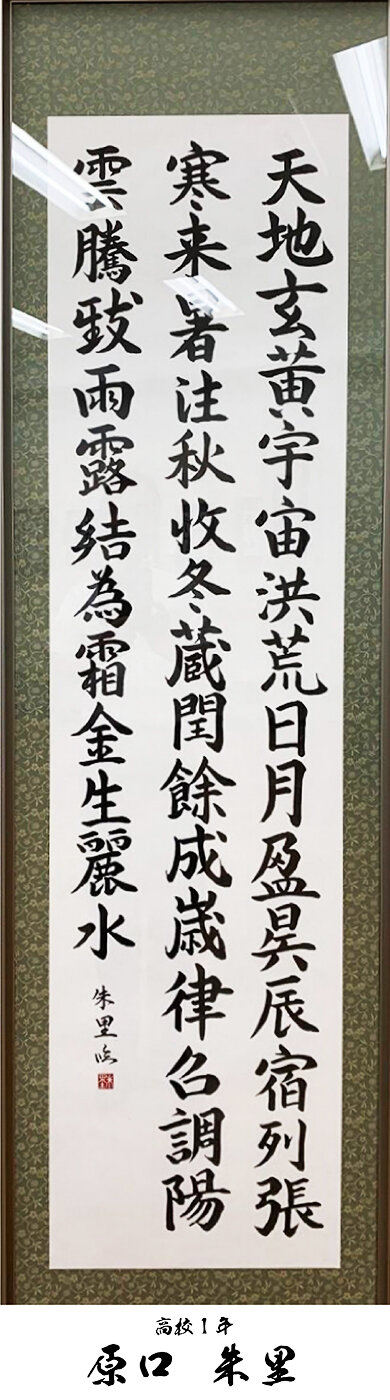 天地玄黄宇宙洪荒日月盈昃辰宿列張
寒来暑注秋收冬蔵閏餘成歳律召調陽
雲騰致雨露結為霜金生麗水
朱里臨
高校1年
原口 朱里